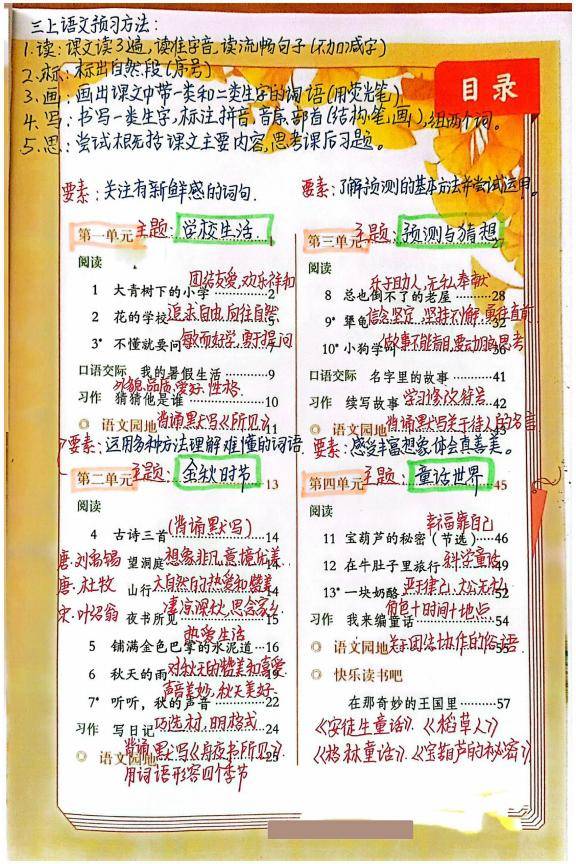 三上语文预习方法：
1.读：课文读3遍，读准字音，读流畅句子（不加减字）
2.标：标出自然段（序号）
3.画：画出课文中带一类和二类生字的词语（用荧光笔）
4.写：书写一类生字，标注拼音，音序，部首（结构，笔画），组两个词。
5.思：尝试概括课文主要内容，思考课后习题。
目录
要素：关注有新鲜感的词句.
第一单元 主题：学校生活. 1
阅读
团结友爱，欢乐祥和
1 大青树下的小学 2
2 花的学校 追求自由，向往自然 5
3* 不懂就要问 敏而好学，勇于提问 7
口语交际 我的暑假生活 9
外貌.品质.爱好.性格.
习作 猜猜他是谁 10
语文园地 背诵默写《所见》 11
要素：运用多种方法理解难懂的词语.
第二单元 主题：金秋时节 13
阅读
4 古诗三首（背诵默写） 14
唐.刘禹锡 望洞庭 想象非凡，意境优美. 14
唐.杜牧 山行 大自然的热爱和赞美
宋.叶绍翁 夜书所见 凄凉深秋，思念家乡 15
热爱生活
5 铺满金色巴掌的水泥道 16
6 秋天的雨 对秋天的赞美和喜爱 19
声音美妙，秋天美好.
7* 听听，秋的声音 22
习作 写日记 巧选材，明格式 24
语文园地 背诵默写《舟夜书所见》. 25
用词语形容四个季节
要素：了解预测的基本方法并尝试运用。
第三单元 主题：预测与猜想 27
阅读
乐于助人，无私奉献
8 总也倒不了的老屋 28
9* 犟龟 信念坚定，坚持不懈，勇往直前 32
10* 小狗学叫 做事不能盲目，要动脑思考 36
口语交际 名字里的故事 41
习作 续写故事 学习修改符号 42
语文园地 背诵默写关于待人的名言 43
要素：感受丰富想象，体会真善美。
第四单元 主题：童话世界 45
阅读
幸福靠自己
11 宝葫芦的秘密（节选） 46
12 在牛肚子里旅行 科学童话
13* 一块奶酪 严于律己，大公无私 52
角色+时间+地点
习作 我来编童话 54
语文园地 关于团结协作的俗语 55
快乐读书吧
在那奇妙的王国里 57
《安徒生童话》.《稻草人》
《格林童话》.《宝葫芦的秘密》.